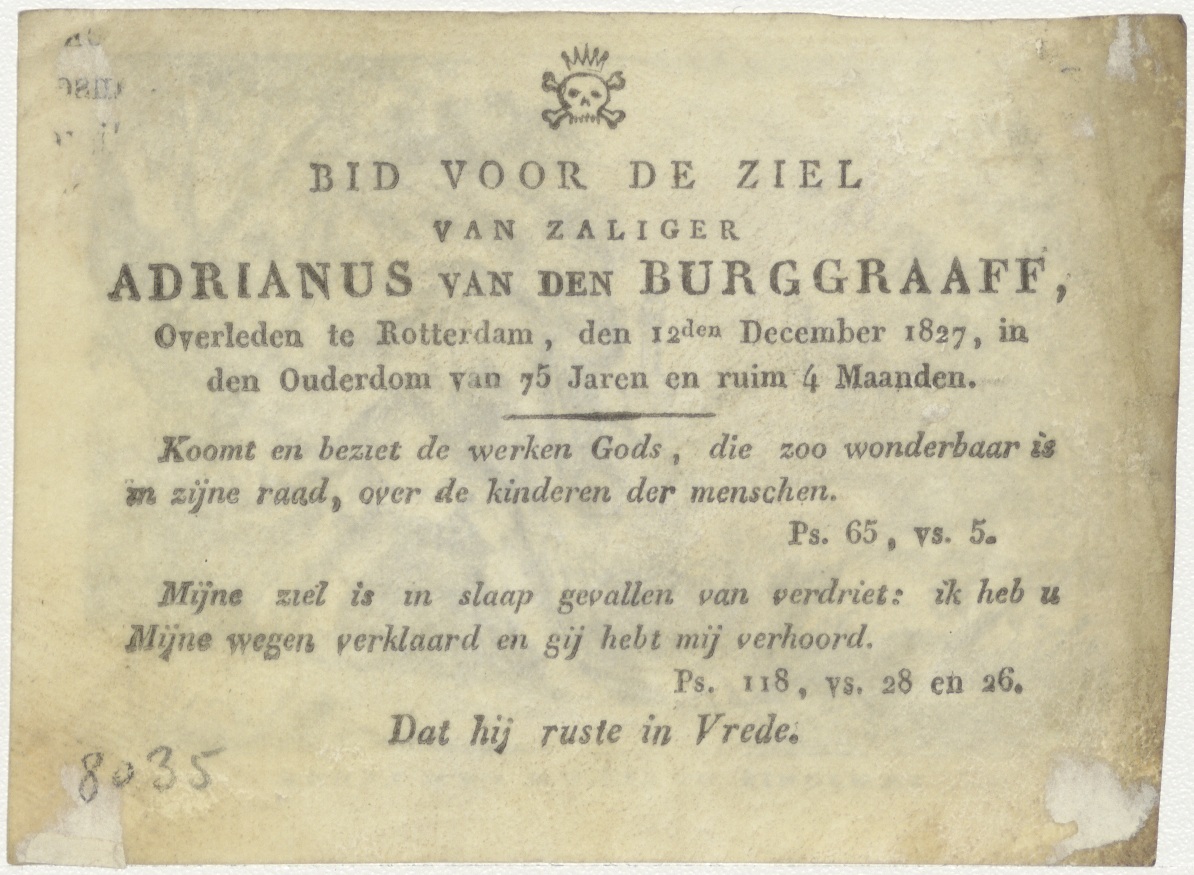 BID VOOR DE ZIEL
VAN ZALIGER
ADRIANUS VAN DEN BURGGRAAFF,
Overleden te Rotterdam, den 12den December 1827, in
den Ouderdom van 75 Jaren en ruim 4 Maanden.
Koomt en beziet de werken Gods, die zoo wonderbaar is
in zijne raad, over de kinderen der menschen.
Ps. 65, vs. 5.
Mijne ziel is in slaap gevallen van verdriet: ik heb u
Mijne wegen verklaard en gij hebt mij verhoord.
Ps. 118, vs. 28 en 26.
Dat hij ruste in Vrede.
8035